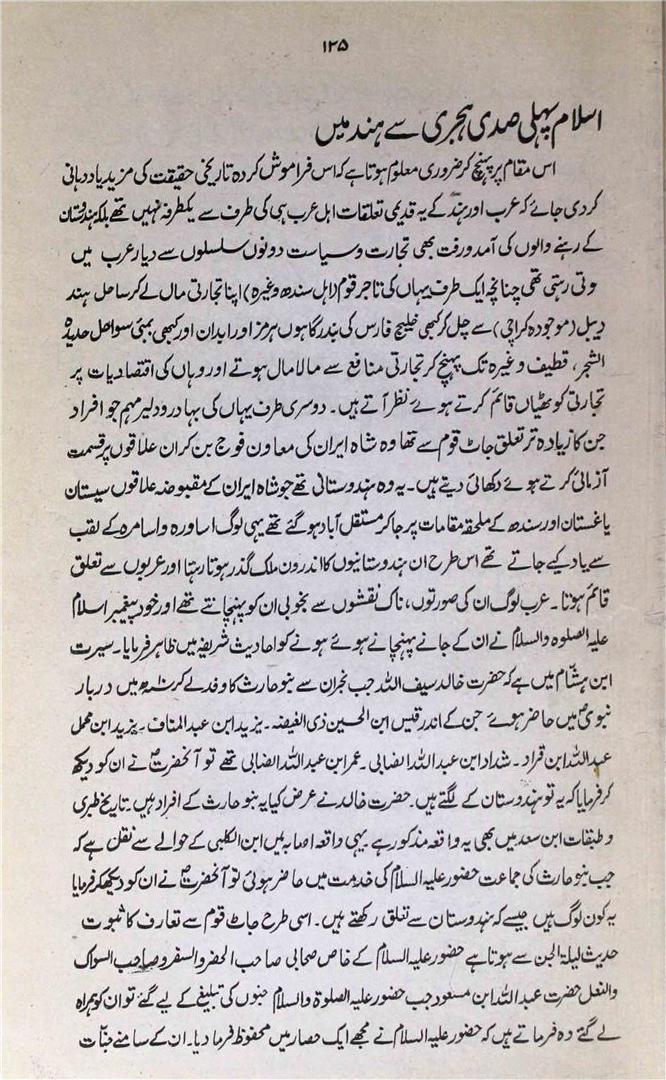 ۱۲۵
اسلام پہلی صدی ہجری سے ہند میں
اس مقام پر پہنچ کر ضروری معلوم ہوتا ہے کہ اس فراموش کردہ تاریخی حقیقت کی مزید یاد دہانی
کردی جائے کہ عرب اور ہند کے یہ قدیمی تعلقات اہل عرب ہی کی طرف سے یکطرفہ نہیں تھے بلکہ ہندوستان
کے رہنے والوں کی آمد ورفت بھی تجارت و سیاست دونوں سلسلوں سے دیار عرب میں
ہوتی رہتی تھی چنانچہ ایک طرف یہاں کی تاجر قوم (اہل سندھ وغیرہ) اپنا تجارتی ماں لے کر ساحل ہند
دیبل (موجودہ کراچی) سے چل کر کبھی خلیج فارس کی بندرگاہوں ہرمز اور ابدان اور کبھی بمئی سواحل حدیدہ
الشجر، قطیف وغیرہ تک پہنچ کر تجارتی منافع سے مالا مال ہوتے اور وہاں کی اقتصادیات پر
تجارتی کوٹھیاں قائم کرتے ہوے نظر آتے ہیں۔ دوسری طرف یہاں کی بہادر و دلیر مہم جو افراد
جن کا زیادہ تر تعلق جاٹ قوم سے تھا وہ شاہ ایران کی معاون فوج بن کر ان علاقوں پر قسمت
آزمائی کرتے ہوئے دکھائی دیتے ہیں۔ یہ وہ ہندوستانی تھے جو شاہ ایران کے مقبوضہ علاقوں سیستان
یاغستان اور سندھ کے ملحقہ مقامات پر جاکر مستقل آباد ہو گئے تھے یہی لوگ اساورہ و اسامرہ کے لقب
سے یاد کیے جاتے تھے اس طرح ان ہندوستانیوں کا اندرون ملک گذر ہوتا رہتا اور عربوں سے تعلق
قائم ہوتا۔ عرب لوگ ان کی صورتوں، ناک نقشوں سے بخوبی ان کو پہنچانتے تھے اور خود پیغمبر اسلام
علیہ الصلوہ والسلام نے ان کے جانے پہنچانے ہوئے ہونے کو احادیث شریفہ میں ظاہر فرمایا۔ سیرت
ابن ہشام میں ہے کہ حضرت خالد سیف اللہ جب نجران سے بنو حارث کا وفد لے کر ۱۰ھ میں دربار
نبوی میں حاضر ہوے جن کے اندر قیس ابن الحسین ذی الغیضہ۔ یزید ابن عبد المناف۔ یزید ابن محمل
عبد اللہ ابن قراد۔ شداد ابن عبد اللہ الضابی۔ عمر ابن عبد اللہ الضابی تھے تو آنحضرتؐ نے ان کو دیکھ
کر فرمایا کہ یہ تو ہندوستان کے لگتے ہیں۔ حضرت خالد نے عرض کیا یہ بنو حارث کے افراد ہیں۔ تاریخ طبری
و طبقات ابن سعد میں بھی یہ واقعہ مذکور ہے۔ یہی واقعہ اصابہ میں ابن الکلبی کے حوالے سے نقل ہے کہ
جب بنو حارث کی جماعت حضور علیہ السلام کی خدمت میں حاضر ہوئی تو آنحضرتؐ نے ان کو دیکھکر فرمایا
یہ کون لوگ ہیں جیسے کہ ہندوستان سے تعلق رکھتے ہیں۔ اسی طرح جاٹ قوم سے تعارف کا ثبوت
حدیث لیلۃ الجن سے ہوتا ہے حضور علیہ السلام کے خاص صحابی صاحب الحضر والسفر وصاحب السواک
والنعل حضرت عبد اللہ ابن مسعود جب حضور علیہ الصلوۃ والسلام جنوں کی تبلیغ کے لیے گئے تو ان کو ہمراہ
لے گئے وہ فرماتے ہیں کہ حضور علیہ السلام نے مجھے ایک حصار میں محفوظ فرما دیا۔ ان کے سامنے جنات